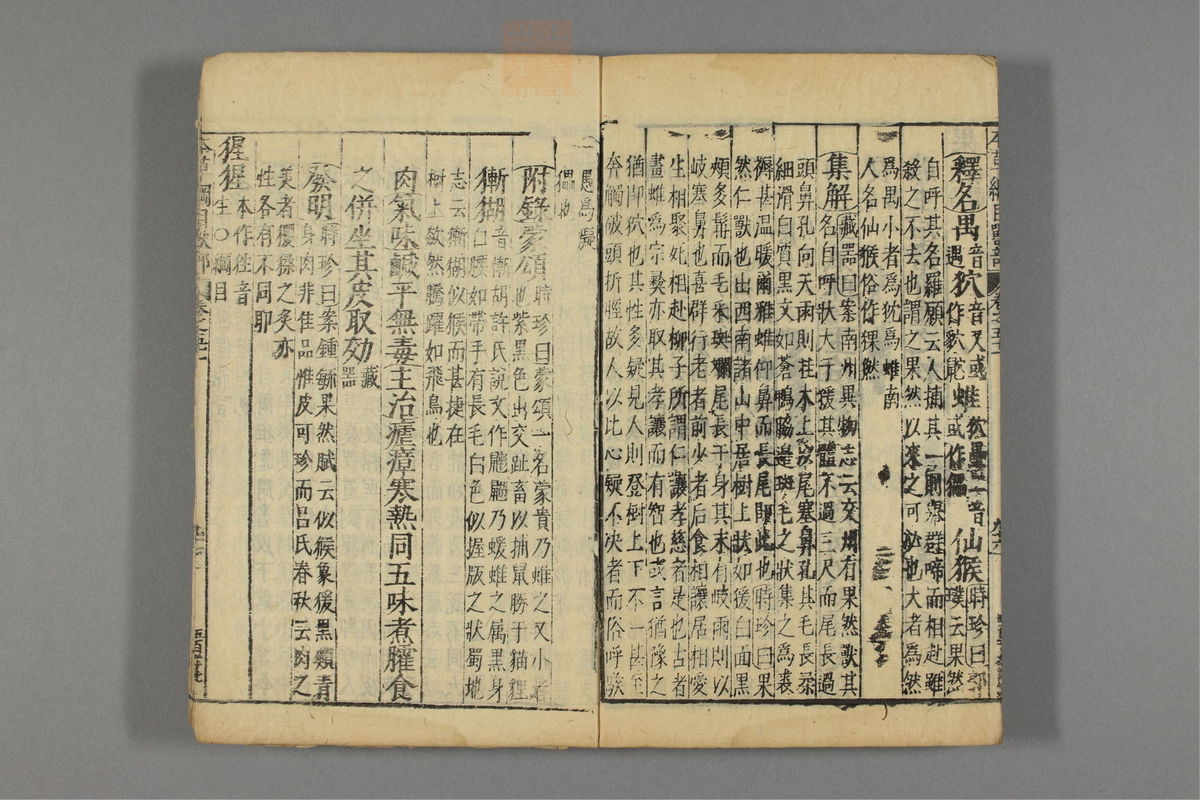 釋名禺音遇狖音又或作㹳貁蜼狖壘二音或作㺠仙猴時珍曰郭璞云果然
自呼其名羅願云人捕其一則舉群啼而相赴雖
殺之不去也謂之果然以來之可必也大者爲然
爲禺小者爲狖爲蜼南
人名仙猴俗作猓然
集解藏器曰案南州異物志云交州有果然獸其
名自呼狀大于猨其體不過三尺而尾長過
頭鼻孔向天雨則挂木上以尾塞鼻孔其毛長柔
細滑白質黑文如蒼鴨脇邊斑毛之狀集之爲裘
褥甚温暖爾雅蜼仰鼻而長尾即此也時珍曰果
然仁獸也出西南諸山中居樹上狀如猨白面黑
頰多髯而毛采斑斕尾長于身其末有岐雨則以
岐塞鼻也喜群行老者前少者后食相讓居相愛
生相聚死相赴柳子所謂仁讓孝慈者是也古者
畫蜼爲宗彝亦取其孝讓而有智也或言猶豫之
猶即狖也其性多疑見人則登樹上下不一甚至
奔觸破頭折脛故人以比心疑不决者而俗呼騃
愚爲癡
㺠也
附錄蒙頌時珍曰蒙頌一名蒙貴乃蜼之又小者
也紫黑色出交趾畜以捕鼠勝于貓狸
獑猢音慚胡許氏說文作䶂䶅乃蝯蜼之属黑身
白腰如帶手有長毛白色似握版之狀蜀地
志云獑猢似猴而甚捷在
樹上歘然騰躍如飛鳥也
肉氣味鹹平無毒主治瘧瘴寒熱同五味煮臛食
之併坐其皮取効藏器
發明時珍曰案鍾毓果然賦云似猴象猨黑頰青
身肉非佳品惟皮可珍而吕氏春秋云肉之
美者玃猱之炙亦
性各有不同耶
猩猩本作狌音生○綱目